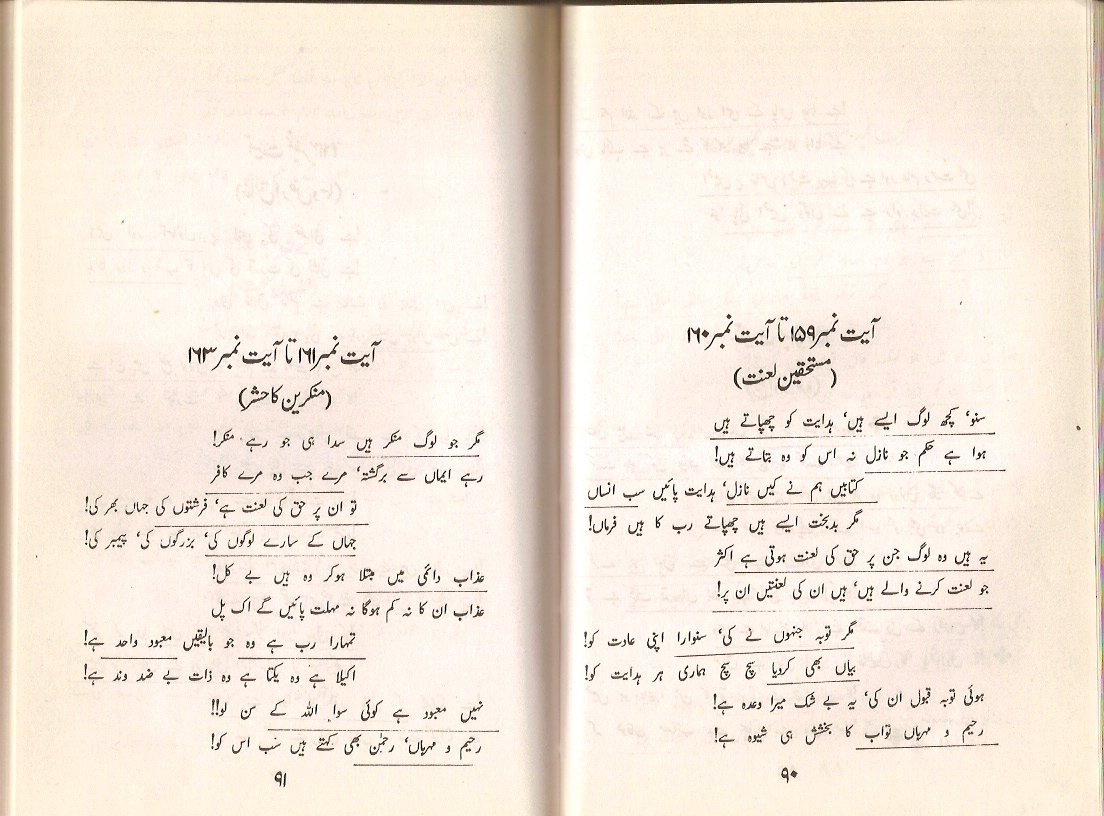 آیت نمبر ۱۵۹ تا آیت نمبر ۱۶۰
(مستحقین لعنت)
سنو، کچھ لوگ ایسے ہیں، ہدایت کو چھپاتے ہیں
ہوا ہے حکم جو نازل نہ اس کو وہ بتاتے ہیں!
کتابیں ہم نے کیں نازل، ہدایت پائیں سب انساں
مگر بدبخت ایسے ہیں چھپاتے رب کا ہیں فرماں!
یہ ہیں وہ لوگ جن پر حق کی لعنت ہوتی ہے اکثر
جو لعنت کرنے والے ہیں، ہیں ان کی لعنتیں ان پر!
مگر توبہ جنہوں نے کی، سنوارا اپنی عادت کو!
بیاں بھی کردیا سچ سچ ہماری ہر ہدایت کو!
ہوئی توبہ قبول ان کی، یہ بے شک میرا وعدہ ہے!
رحیم و مہرباں تواب کا بخشش ہی شیوہ ہے!
۹۰
آیت نمبر ۱۶۱ تا آیت نمبر ۱۶۳
(منکرین کا حشر)
مگر جو لوگ منکر ہیں سدا ہی جو رہے منکر!
رہے ایماں سے برگشتہ، مرے جب وہ مرے کافر
تو ان پر حق کی لعنت ہے، فرشتوں کی جہاں بھر کی!
جہاں کے سارے لوگوں کی، بزرگوں کی، پیمبر کی!
عذاب دائمی میں مبتلا ہوکر وہ ہیں بے کل!
عذاب ان کا نہ کم ہوگا نہ مہلت پائیں گے اک پل
تمہارا رب ہے وہ جو بالیقیں معبود واحد ہے!
اکیلا ہے وہ یکتا ہے وہ ذات بے ضد وند ہے!
نہیں معبود ہے کوئی سوا اللہ کے سن لو!!
رحیم و مہرباں، رحمٰن بھی کہتے ہیں سب اس کو!
۹۱